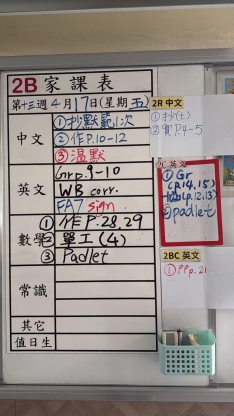 2B 家課表
第十三週 4月17日(星期五)
中文
①抄默範1次
②作P.10-12
③温默
英文
Grp.9-10
WB corr.
FA7 sign
數學
①作P.28,29
②單工(4)
③Padlet
常識
其它
值日生
2R 中文
①抄(七)
②實P.4-5
英文
①Gr
(P.14,15)
(p.12,13)
③padlet
2BC 英文
①PP.21